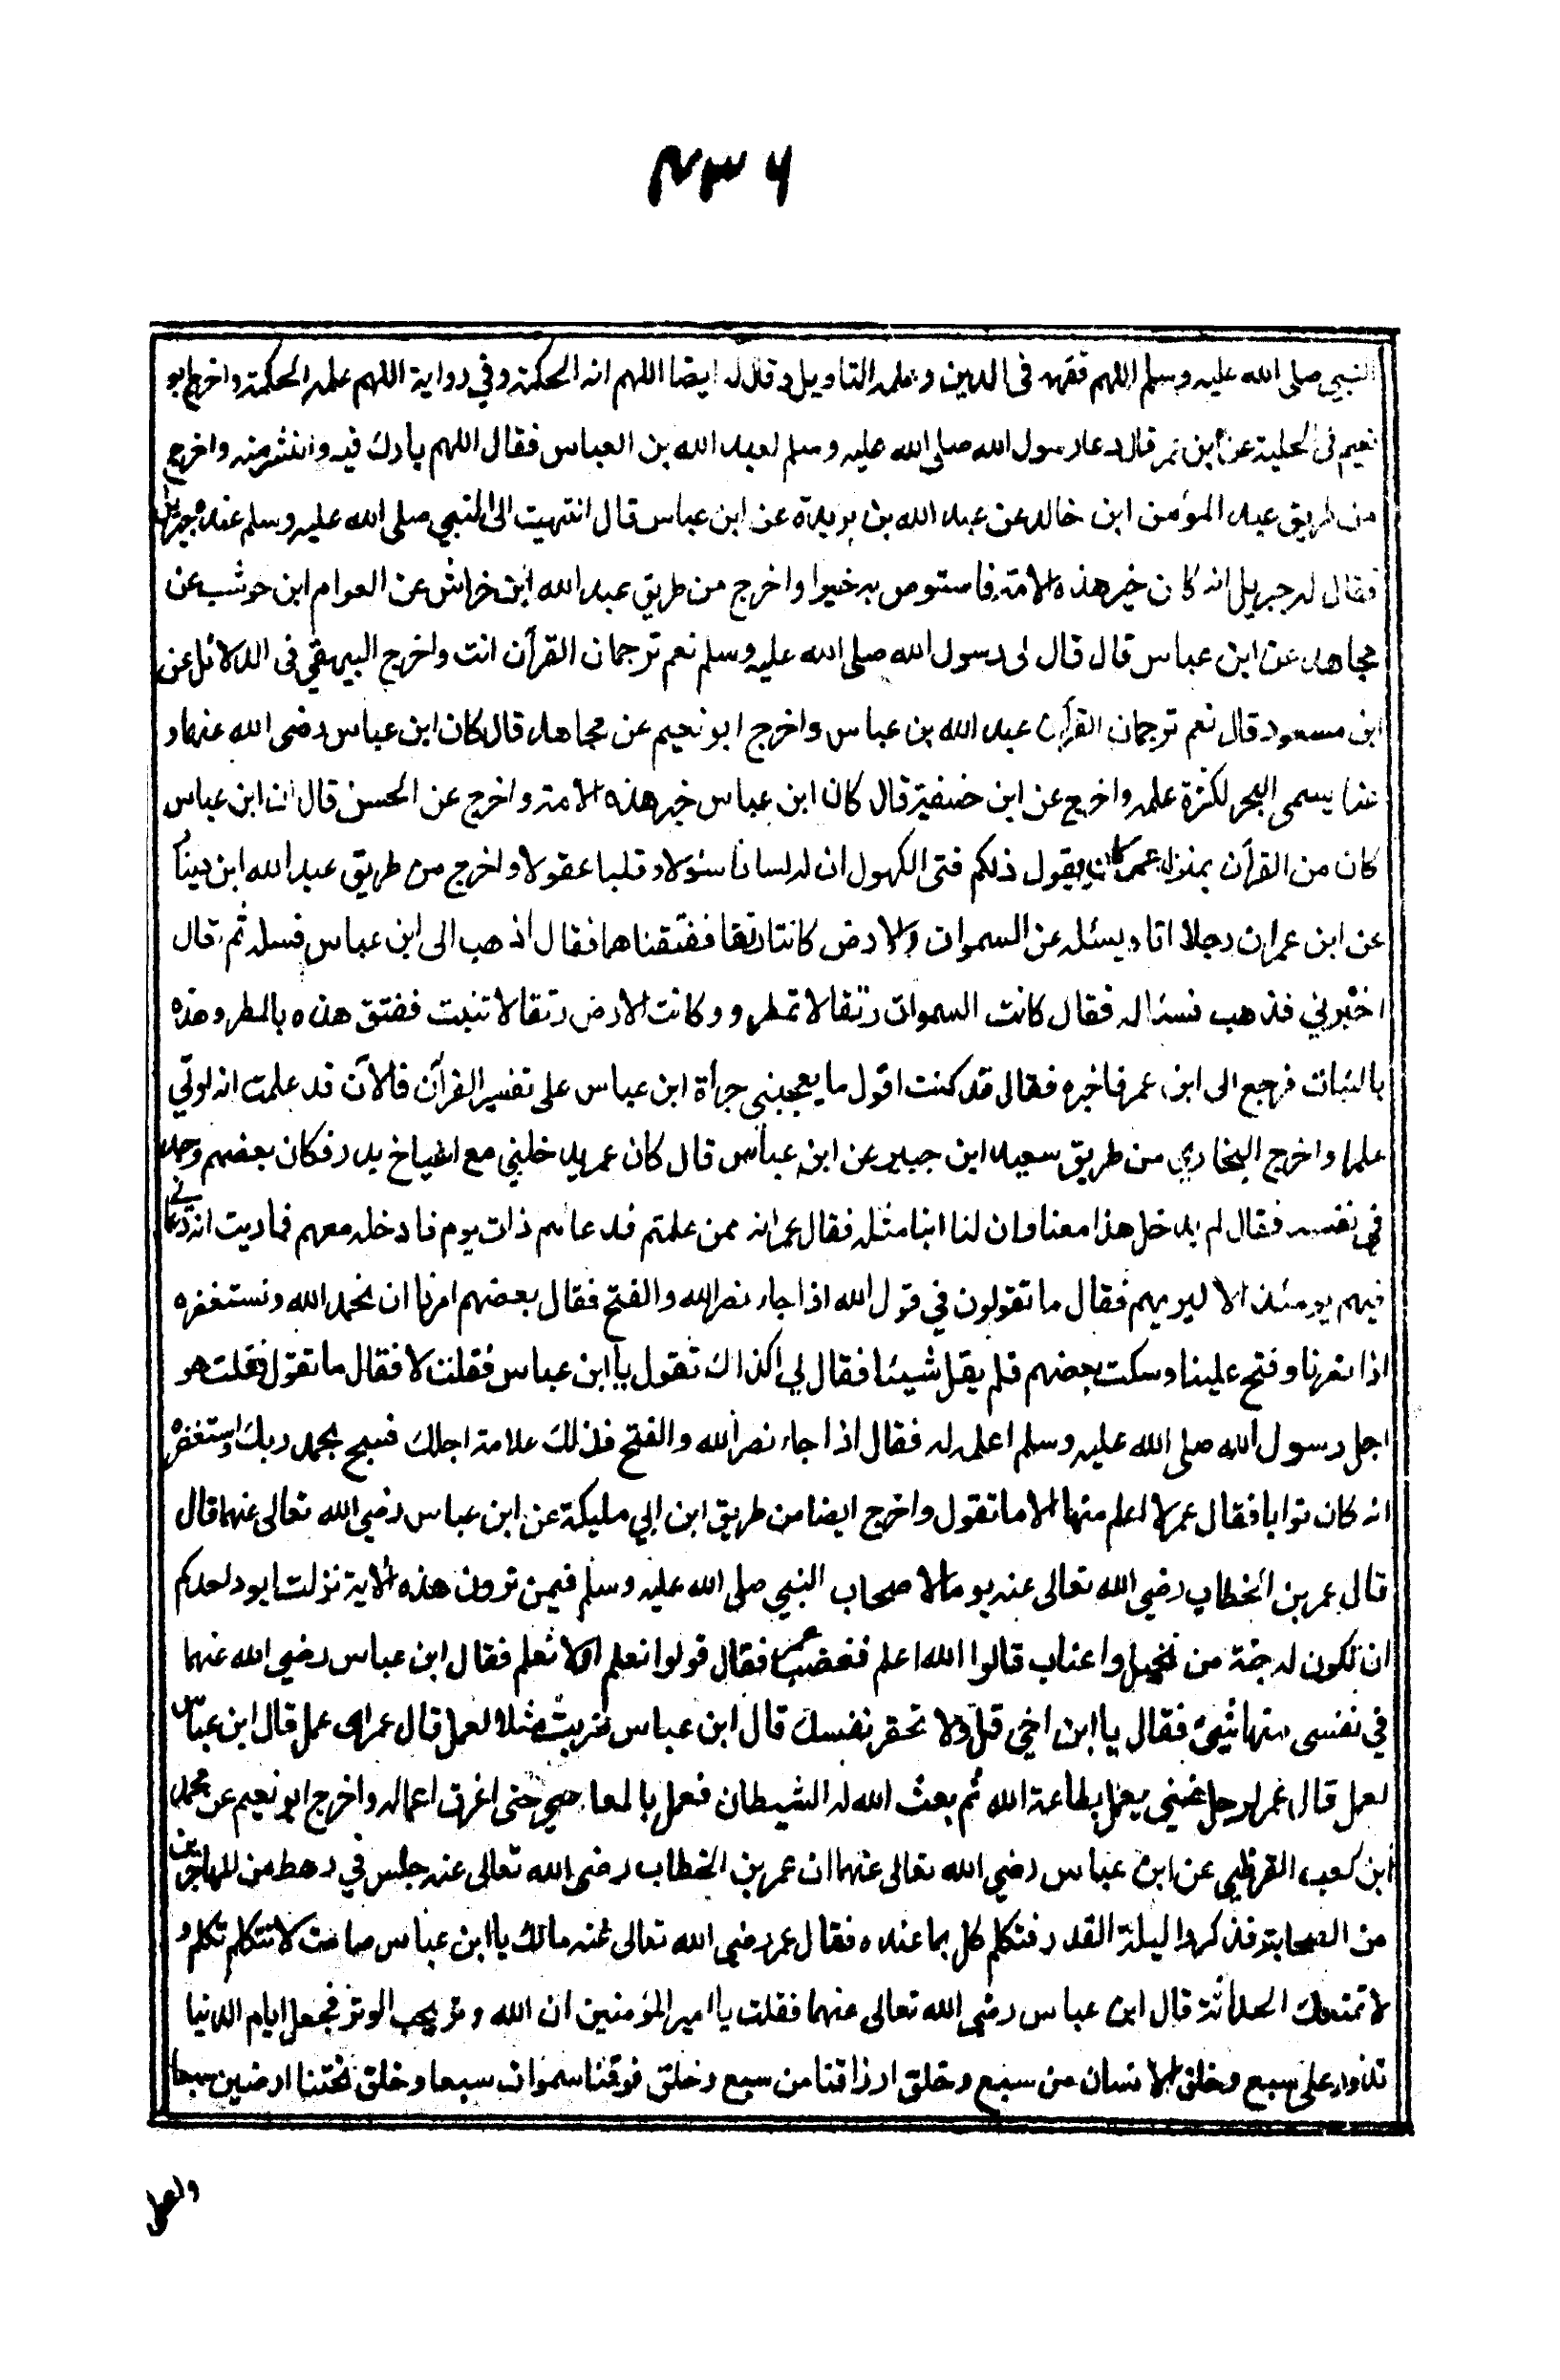 ٤٣٦
النبي صلى الله عليه وسلم اللهم فقهه فى الدين وعلمه التاويل وقال له ايضا اللهم اته الحكمة وفي رواية اللهم علمه الحكمة واخرج ابو
نعيم فى الحلية عن ابن عمر قال دعا رسول الله صلى الله عليه وسلم لعبد الله بن العباس فقال اللهم بارك فيه وانشر منه واخرج
من طريق عبد المؤمن ابن خالد عن عبد الله بن بريدة عن ابن عباس قال انتهيت الى النبي صلى الله عليه وسلم عنده جبريل
فقال له جبريل انه كان خير هذه الامة فاستوص به خيرا واخرج من طريق عبد الله ابن خراش عن العوام ابن حوشب عن
مجاهد عن ابن عباس قال قال لى رسول الله صلى الله عليه وسلم نعم ترجمان القرآن انت واخرج البيهقي فى الدلائل عن
ابن مسعود قال نعم ترجمان القرآن عبد الله بن عباس واخرج ابو نعيم عن مجاهد قال كان ابن عباس رضى الله عنهما و
عنا يسمى البحر لكثرة علمه واخرج عن ابن حنفية قال كان ابن عباس خير هذه الامة واخرج عن الحسن قال ان ابن عباس
كان من القرآن بمنزل عمر كان يقول ذلكم فتى الكهول ان له لسانا سئولا وقلبا عقولا واخرج من طريق عبد الله ابن دينار
عن ابن عمر ان رجلا اتاه يسئله عن السموات والارض كانتا رتقا ففتقناهما فقال اذهب الى ابن عباس فسله ثم قال
اخبرني فذهب فسئاله فقال كانت السموات رتقا لا تمطر و وكانت الارض رتقا لا تنبت ففتق هذه بالمطر وهذه
بالنبات فرجع الى ابن عمر فاخبره فقال قد كنت اقول ما يعجبني جرأة ابن عباس على تفسير القرآن فالآن قد علمت انه لوتي
علما واخرج البخاري من طريق سعيد ابن جبير عن ابن عباس قال كان عمر يدخلني مع اشياخ بدر فكان بعضهم وجد
في نفسه فقال لم يدخل هذا معنا وان لنا ابنا مثله فقال عمر انه ممن علمتم فدعاهم ذات يوم فادخله معهم فما ريت انه دعاني
فيهم يومئذ الا ليريهم فقال ما تقولون في قول الله اذا جاء نصر الله والفتح فقال بعضهم امرنا ان نحمد الله ونستغفره
اذا نصرنا وفتح علينا وسكت بعضهم فلم يقل شيئا فقال لي اكذاك تقول يا ابن عباس فقلت لا فقال ما تقول فقلت هو
اجل رسول الله صلى الله عليه وسلم اعلمه له فقال اذا جاء نصر الله والفتح فذلك علامة اجلك فسبح بحمد ربك واستغفره
انه كان توابا فقال عمر لا اعلم منها الا ما تقول واخرج ايضا من طريق ابن ابي مليكة عن ابن عباس رضي الله تعالى عنهما قال
قال عمر بن الخطاب رضي الله تعالى عنه يوما لاصحاب النبي صلى الله عليه وسلم فيمن ترون هذه الاية نزلت ايود احدكم
ان تكون له جنة من نخيل واعناب قالوا الله اعلم فغضب عمر فقال قولوا نعلم اولا نعلم فقال ابن عباس رضي الله عنهما
في نفسى منها شيئ فقال يا ابن اخي قل ولا تحقر نفسك قال ابن عباس ضربت مثلا لعمل قال عمر اى عمل قال ابن عباس
لعمل قال عمر لرجل غني يعمل بطاعة الله ثم بعث الله له الشيطان فعمل بالمعاصي حتى اغرق اعماله واخرج ابو نعيم عن محمد
ابن كعب القرظي عن ابن عباس رضي الله تعالى عنهما ان عمر بن الخطاب رضى الله تعالى عنه جلس في رهط من المهاجرين
من الصحابة فذكروا ليلة القدر فتكلم كل بما عنده فقال عمر رضي الله تعالى عنه مالك يا ابن عباس صامت لا تتكلم تكلم و
لا تمنعك الحداثة قال ابن عباس رضي الله تعالى عنهما فقلت يا امير المؤمنين ان الله وتر يحب الوتر فجعل ايام الدنيا
تدور على سبع وخلق الانسان من سبع وخلق ارزاقنا من سبع وخلق فوقنا سموات سبعا وخلق تحتنا ارضين سبعا